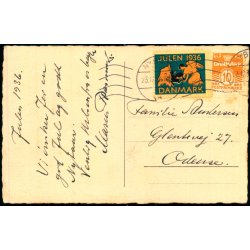 Julen 1936.
Vi ønsker Jer en
god Jul og godt
Nytaar.
Venlig Hilsen fra
Maria
JULEN 1936
DANMARK
DANMARK
10
Familie Andersen
Glentevej 27.
Odense